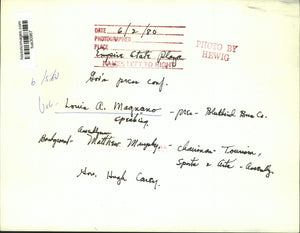 DATE 6/2/80
PHOTOGRAPHED
PLACE Empire State Plaza
NAMES LEFT TO RIGHT
PHOTO BY
HEWIG
6/2/80
Gov's press conf.
Louis A. Magnano - pres - Bluebird Bus Co.
speaking
Assemblyman
Background - Matthew Murphy - chairman Tourism,
Sports & Arts - Assembly
Gov. Hugh Carey